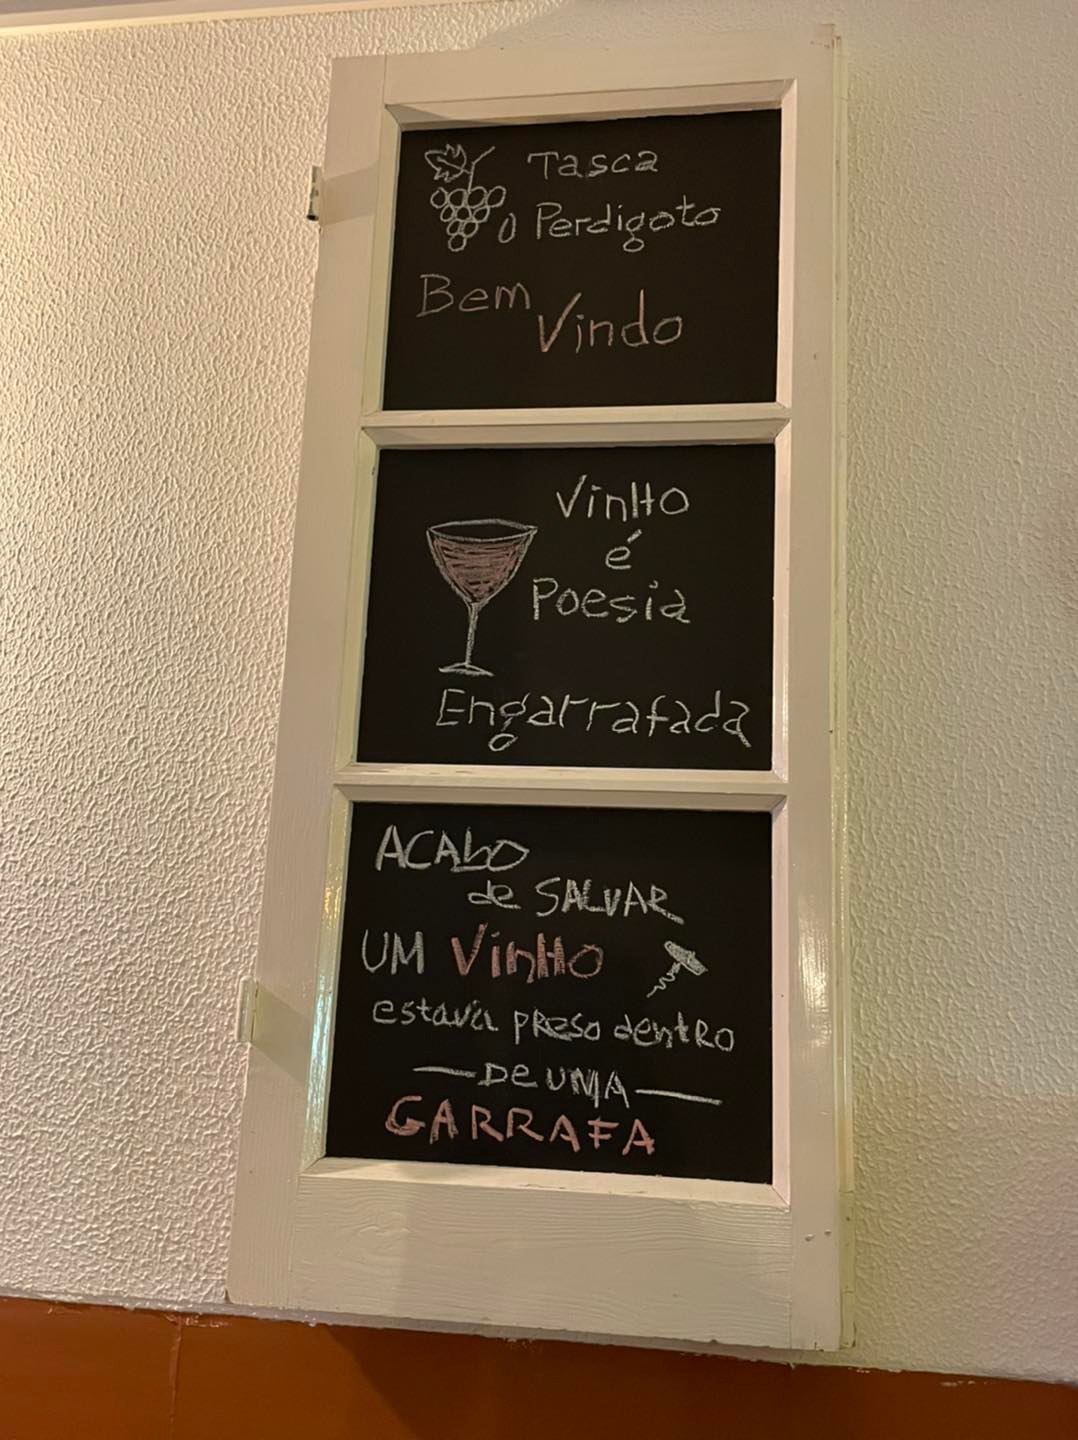 Tasca
o Perdigoto
Bem
Vindo
Vinho
é
Poesia
Engarrafada
ACAbO
de SALVAR
UM VinHo
estava preso dentro
— De UMA —
GARRAFA